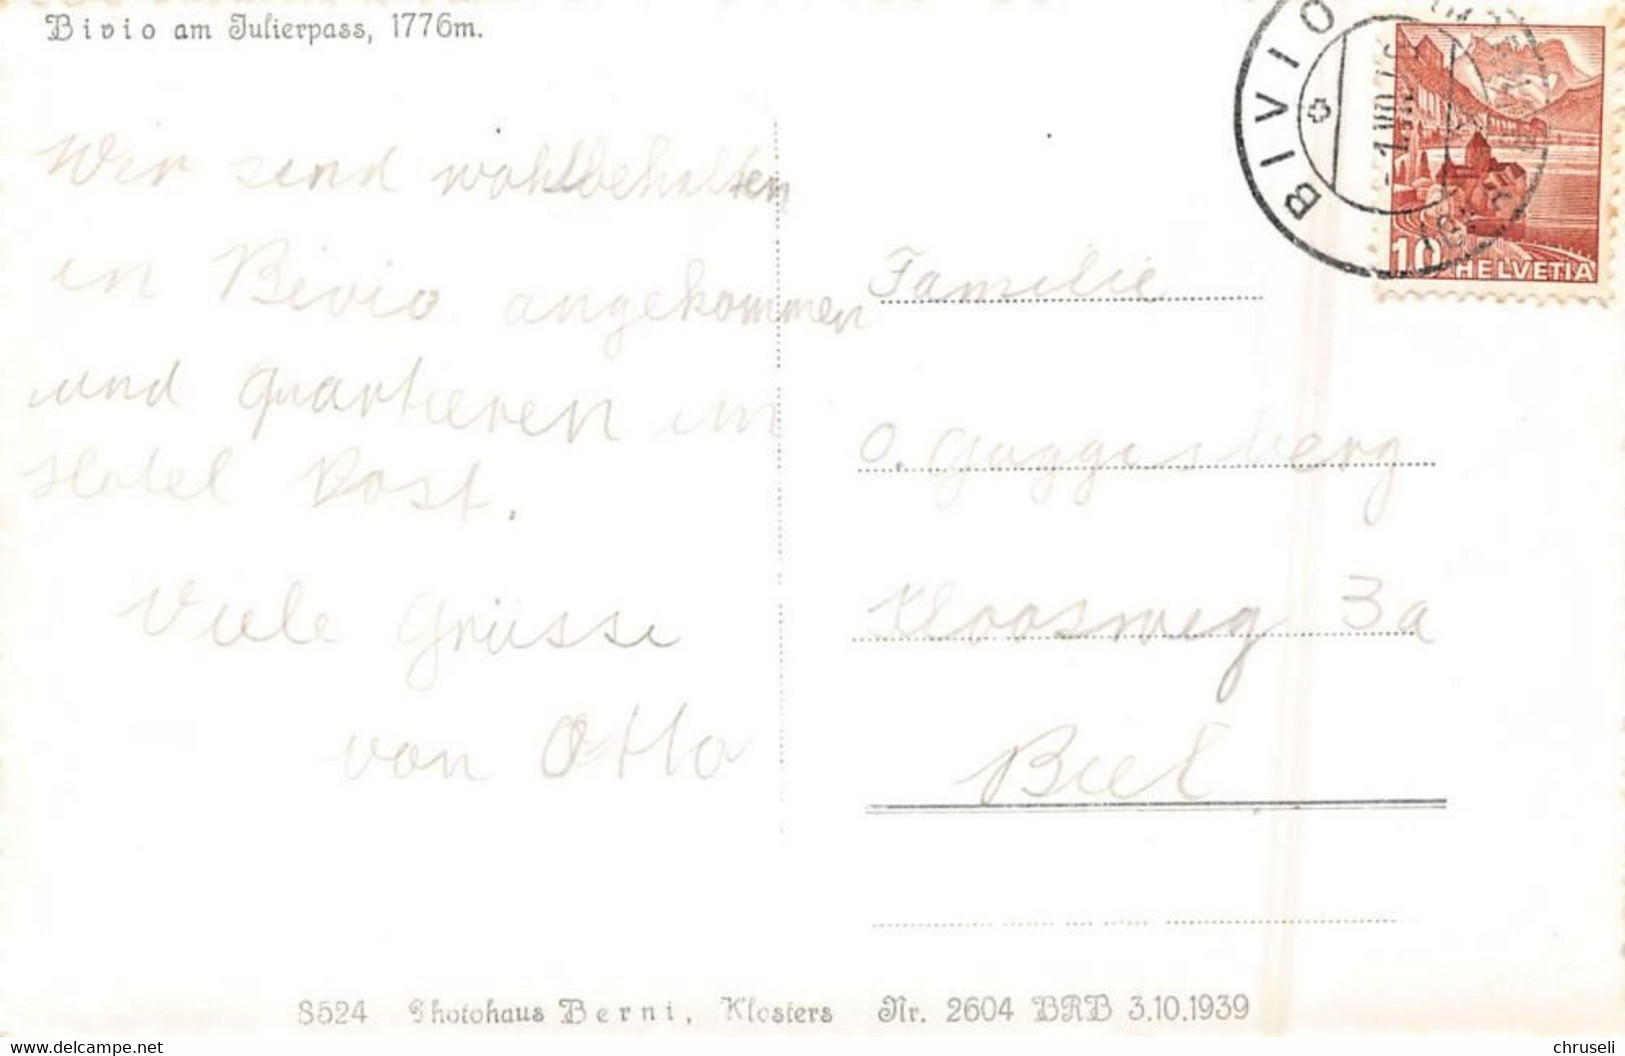 Bivio am Julierpass, 1776m.
BIVIO
-1.VIII.
10 HELVETIA
Wir sind wohlbehalten
in Bivio angekommen
und quartieren im
Hotel Post.
Viele Grüsse
von Otto
Familie
O. Guggisberg
Kloosweg 3a
Biel
8524 Photohaus Berni, Klosters Nr. 2604 BRB 3.10.1939
www.delcampe.net
chruseli